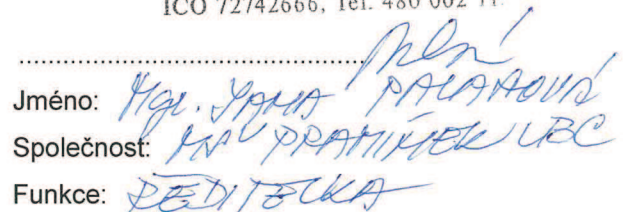 IČO 72742666, Tel. 480 002 11
Jméno: Mgr. JANA
Společnost: MŠ PRAMÍNEK LBC
Funkce: ŘEDITELKA